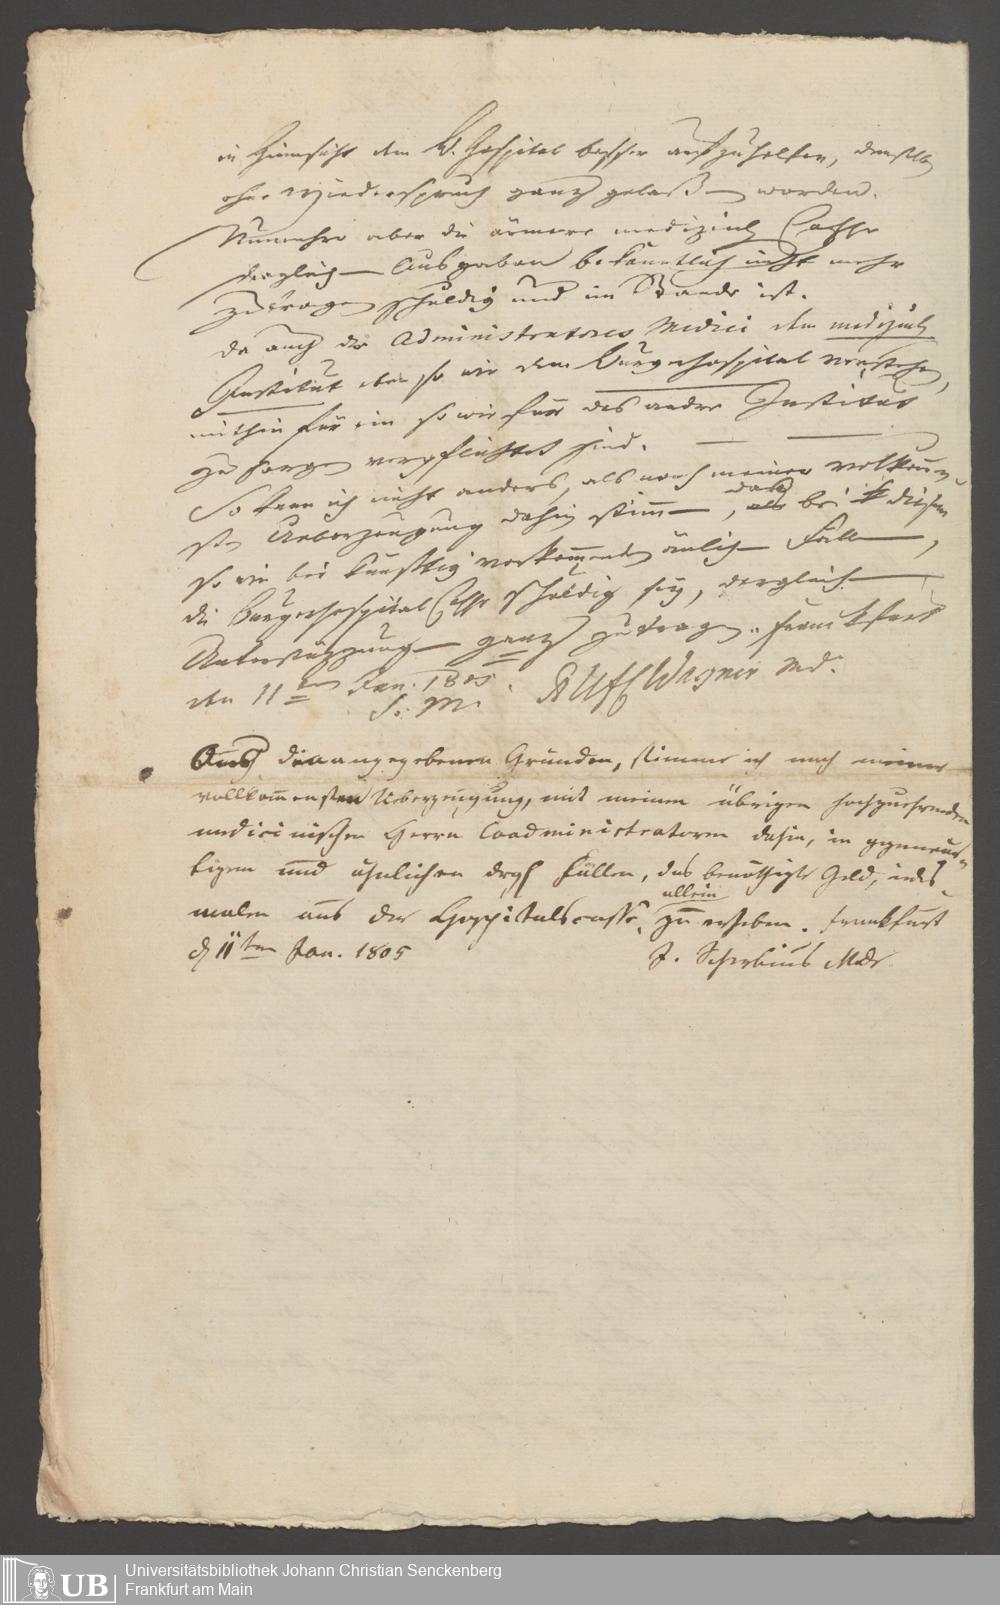 in Hinsicht dem B. Hospital besser aufzuhelfen, denselb
ohne Wiederspruch ganz gelaßen worden.
Nunmehro aber die ärmere medizinl Casse
dergleichen Ausgaben bekanntlich nicht mehr
zu tragen schuldig und im Stande ist.
da auch die Administratores Medici dem medizinl
Institut eben so wie dem Burgerhospital vorstehen,
mithin für ein so wie für das andre Institut
zu sorgen verpflichtet sind.
So kann ich nicht anders, als nach meiner vollkom̄en
sten Ueberzeugung dahin stimmen, daß bei diesem
so wie bei künfftig vorkom̄enden änlichen Fällen,
die Burgerhospital Casse schuldig sey, dergleichen
Unterstüzzungen ganz zu tragen. Franckfurt
den 11ten Jan. 1805.
S. M. Wagner Md.
Aus den angegebenen Gründen, stimme ich nach meiner
vollkom̄ensten Ueberzeugung, mit meinen übrigen hochzuehrenden
medicinischen Herrn Coadministratoren dahin, in gegenwär-
tigen und ähnlichen Fällen, das benöthigte Geld, jedes-
malen aus der Hospitalscasse allein zu erheben. Frankfurt
d 11ten Jan. 1805
J. Scherbius MDr.
Universitätsbibliothek Johann Christian Senckenberg
Frankfurt am Main
UB